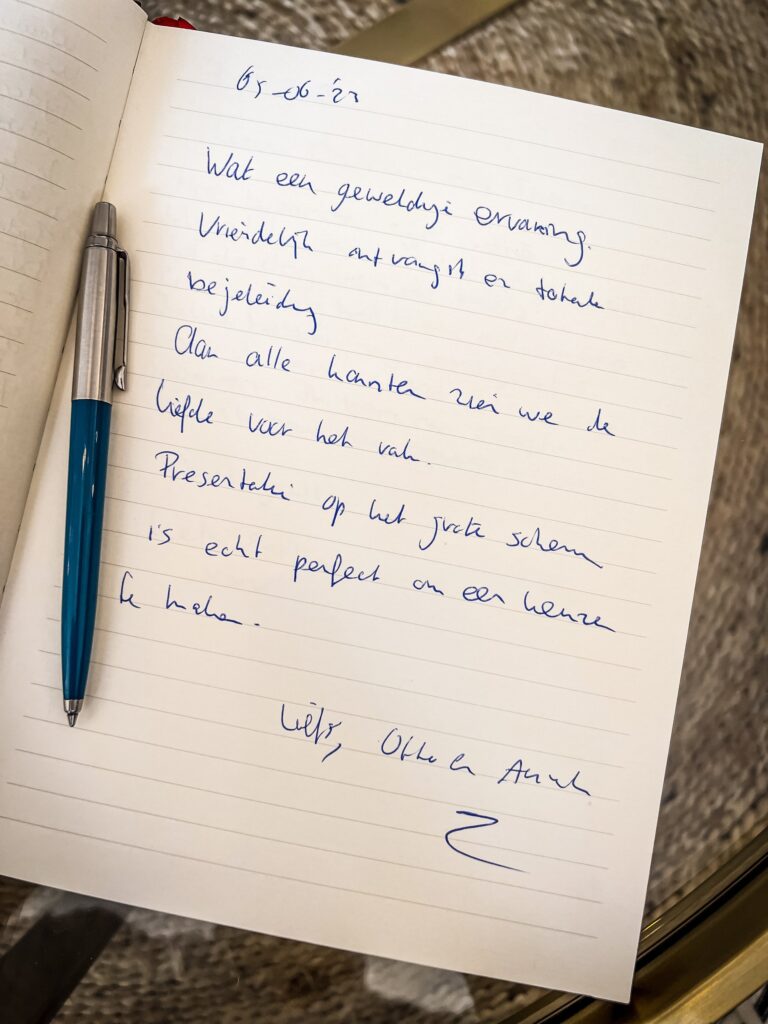 05-06-'23
Wat een geweldige ervaring.
Vriendelijk ontvangst en totale
begeleiding
Aan alle kanten zien we de
liefde voor het vak.
Presentatie op het grote scherm
is echt perfect om een keuze
te maken.
Liefs, Otto en